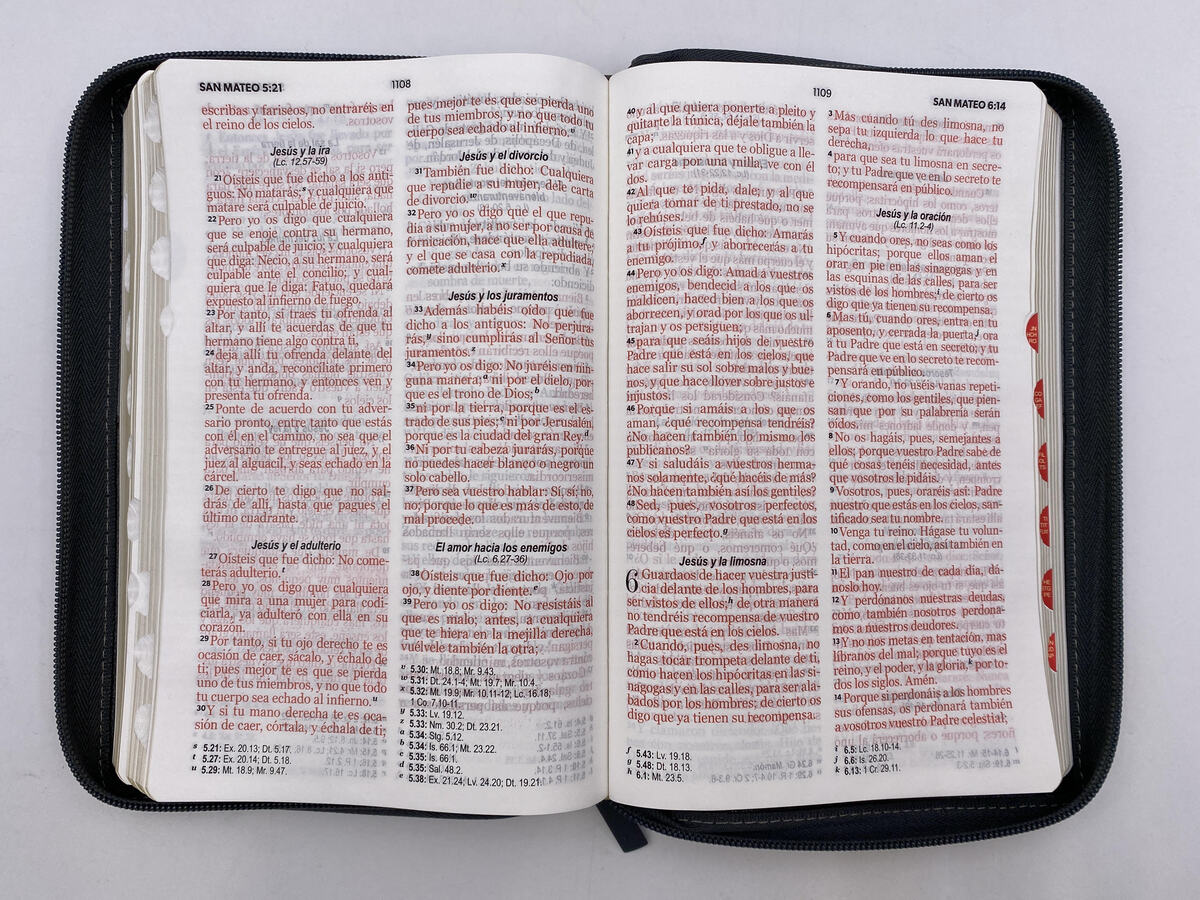 SAN MATEO 5:21
1108
escribas y fariseos, no entraréis en
el reino de los cielos.
Jesús y la ira
(Lc. 12.57-59)
21 Oísteis que fue dicho a los anti-
guos: No matarás; s y cualquiera que
matare será culpable de juicio.
22 Pero yo os digo que cualquiera
que se enoje contra su hermano,
será culpable de juicio; y cualquiera
que diga: Necio, a su hermano, será
culpable ante el concilio; y cual-
quiera que le diga: Fatuo, quedará
expuesto al infierno de fuego.
23 Por tanto, si traes tu ofrenda al
altar, y allí te acuerdas de que tu
hermano tiene algo contra ti,
24 deja allí tu ofrenda delante del
altar, y anda, reconcíliate primero
con tu hermano, y entonces ven y
presenta tu ofrenda.
25 Ponte de acuerdo con tu adver-
sario pronto, entre tanto que estás
con él en el camino, no sea que el
adversario te entregue al juez, y el
juez al alguacil, y seas echado en la
cárcel.
26 De cierto te digo que no sal-
drás de allí, hasta que pagues el
último cuadrante.
Jesús y el adulterio
27 Oísteis que fue dicho: No come-
terás adulterio. t
28 Pero yo os digo que cualquiera
que mira a una mujer para codi-
ciarla, ya adulteró con ella en su
corazón.
29 Por tanto, si tu ojo derecho te es
ocasión de caer, sácalo, y échalo de
ti; pues mejor te es que se pierda
uno de tus miembros, y no que todo
tu cuerpo sea echado al infierno. u
30 Y si tu mano derecha te es oca-
sión de caer, córtala, y échala de ti;
s 5.21: Ex. 20.13; Dt. 5.17.
t 5.27: Ex. 20.14; Dt. 5.18.
u 5.29: Mt. 18.9; Mr. 9.47.
pues mejor te es que se pierda uno
de tus miembros, y no que todo tu
cuerpo sea echado al infierno. v
Jesús y el divorcio
31 También fue dicho: Cualquiera
que repudie a su mujer, dele carta
de divorcio. w
32 Pero yo os digo que el que repu-
dia a su mujer, a no ser por causa de
fornicación, hace que ella adultere;
y el que se casa con la repudiada,
comete adulterio. x
Jesús y los juramentos
33 Además habéis oído que fue
dicho a los antiguos: No perjura-
rás, y sino cumplirás al Señor tus
juramentos. z
34 Pero yo os digo: No juréis en nin-
guna manera; a ni por el cielo, por-
que es el trono de Dios; b
35 ni por la tierra, porque es el es-
trado de sus pies; c ni por Jerusalén,
porque es la ciudad del gran Rey. d
36 Ni por tu cabeza jurarás, porque
no puedes hacer blanco o negro un
solo cabello.
37 Pero sea vuestro hablar: Sí, sí; no,
no; porque lo que es más de esto, de
mal procede.
El amor hacia los enemigos
(Lc. 6.27-36)
38 Oísteis que fue dicho: Ojo por
ojo, y diente por diente. e
39 Pero yo os digo: No resistáis al
que es malo; antes, a cualquiera
que te hiera en la mejilla derecha,
vuélvele también la otra;
v 5.30: Mt. 18.8; Mr. 9.43.
w 5.31: Dt. 24.1-4; Mt. 19.7; Mr. 10.4.
x 5.32: Mt. 19.9; Mr. 10.11-12; Lc. 16.18;
1 Co. 7.10-11.
y 5.33: Lv. 19.12.
z 5.33: Nm. 30.2; Dt. 23.21.
a 5.34: Stg. 5.12.
b 5.34: Is. 66.1; Mt. 23.22.
c 5.35: Is. 66.1.
d 5.35: Sal. 48.2.
e 5.38: Ex. 21.24; Lv. 24.20; Dt. 19.21.
1109
SAN MATEO 6:14
40 y al que quiera ponerte a pleito y
quitarte la túnica, déjale también la
capa;
41 y a cualquiera que te obligue a lle-
var carga por una milla, ve con él
dos.
42 Al que te pida, dale; y al que
quiera tomar de ti prestado, no se
lo rehúses.
43 Oísteis que fue dicho: Amarás
a tu prójimo, f y aborrecerás a tu
enemigo.
44 Pero yo os digo: Amad a vuestros
enemigos, bendecid a los que os
maldicen, haced bien a los que os
aborrecen, y orad por los que os ul-
trajan y os persiguen;
45 para que seáis hijos de vuestro
Padre que está en los cielos, que
hace salir su sol sobre malos y bue-
nos, y que hace llover sobre justos e
injustos.
46 Porque si amáis a los que os
aman, ¿qué recompensa tendréis?
¿No hacen también lo mismo los
publicanos?
47 Y si saludáis a vuestros herma-
nos solamente, ¿qué hacéis de más?
¿No hacen también así los gentiles?
48 Sed, pues, vosotros perfectos,
como vuestro Padre que está en los
cielos es perfecto. g
Jesús y la limosna
6 Guardaos de hacer vuestra justi-
cia delante de los hombres, para
ser vistos de ellos; h de otra manera
no tendréis recompensa de vuestro
Padre que está en los cielos.
2 Cuando, pues, des limosna, no
hagas tocar trompeta delante de ti,
como hacen los hipócritas en las si-
nagogas y en las calles, para ser ala-
bados por los hombres; de cierto os
digo que ya tienen su recompensa.
f 5.43: Lv. 19.18.
g 5.48: Dt. 18.13.
h 6.1: Mt. 23.5.
3 Mas cuando tú des limosna, no
sepa tu izquierda lo que hace tu
derecha,
4 para que sea tu limosna en secre-
to; y tu Padre que ve en lo secreto te
recompensará en público.
Jesús y la oración
(Lc. 11.2-4)
5 Y cuando ores, no seas como los
hipócritas; porque ellos aman el
orar en pie en las sinagogas y en
las esquinas de las calles, para ser
vistos de los hombres; i de cierto os
digo que ya tienen su recompensa.
6 Mas tú, cuando ores, entra en tu
aposento, y cerrada la puerta, j ora
a tu Padre que está en secreto; y tu
Padre que ve en lo secreto te recom-
pensará en público.
7 Y orando, no uséis vanas repeti-
ciones, como los gentiles, que pien-
san que por su palabrería serán
oídos.
8 No os hagáis, pues, semejantes a
ellos; porque vuestro Padre sabe de
qué cosas tenéis necesidad, antes
que vosotros le pidáis.
9 Vosotros, pues, oraréis así: Padre
nuestro que estás en los cielos, san-
tificado sea tu nombre.
10 Venga tu reino. Hágase tu volun-
tad, como en el cielo, así también en
la tierra.
11 El pan nuestro de cada día, dá-
noslo hoy.
12 Y perdónanos nuestras deudas,
como también nosotros perdona-
mos a nuestros deudores.
13 Y no nos metas en tentación, mas
líbranos del mal; porque tuyo es el
reino, y el poder, y la gloria, k por to-
dos los siglos. Amén.
14 Porque si perdonáis a los hombres
sus ofensas, os perdonará también
a vosotros vuestro Padre celestial;
i 6.5: Lc. 18.10-14.
j 6.6: Is. 26.20.
k 6.13: 1 Cr. 29.11.